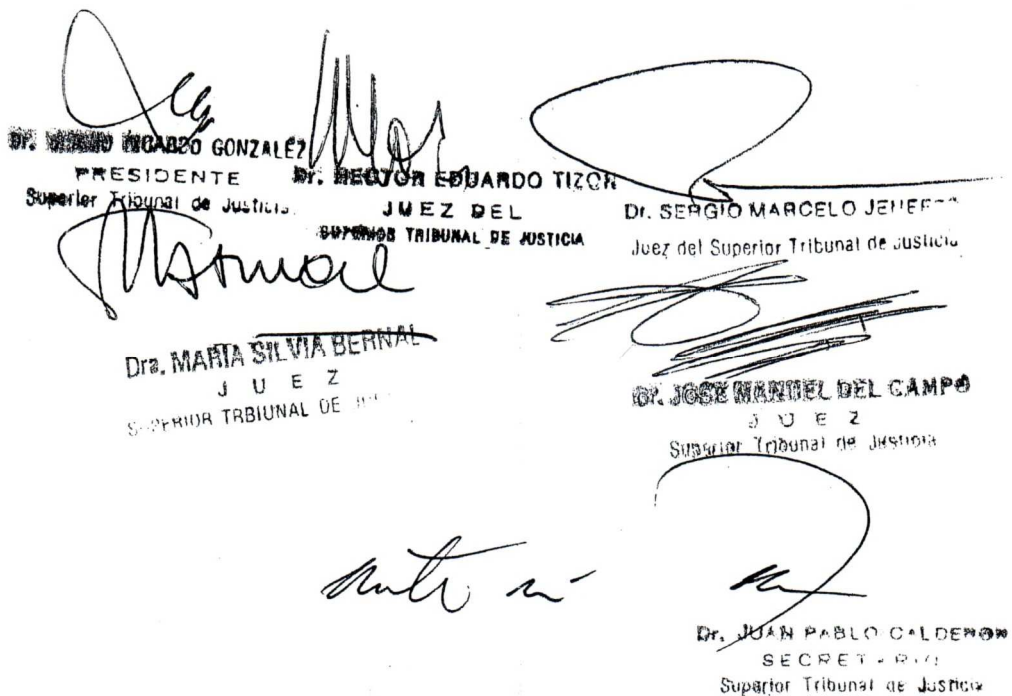 Dr. RICARDO GONZALEZ
PRESIDENTE
Superior Tribunal de Justicia
Dr. HECTOR EDUARDO TIZON
JUEZ DEL
SUPERIOR TRIBUNAL DE JUSTICIA
Dr. SERGIO MARCELO
Juez del Superior Tribunal de Justicia
Dra. MARIA SILVIA BERNAL
JUEZ
SUPERIOR TRBIUNAL DE
Dr. JOSE MANUEL DEL CAMPO
JUEZ
Superior Tribunal de Justicia
ante mi
Dr. JUAN PABLO CALDERON
SECRETARIO
Superior Tribunal de Justicia